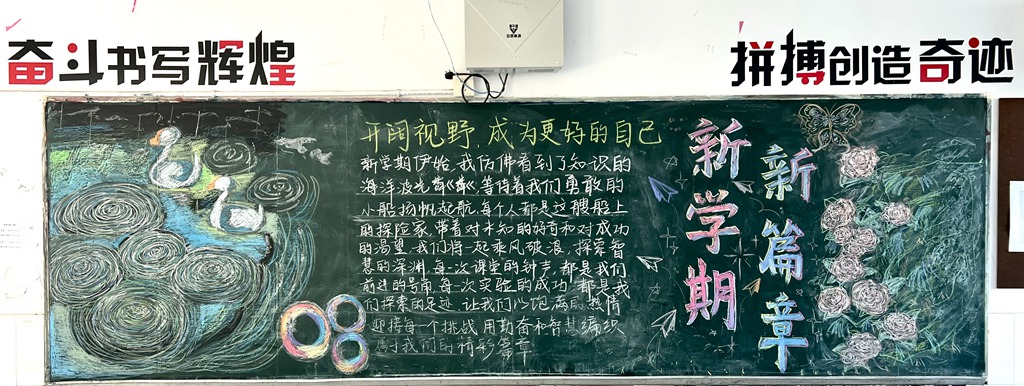 奋斗书写辉煌
拼搏创造奇迹
开阔视野,成为更好的自己
新学期伊始,我仿佛看到了知识的
海洋波光粼粼,等待着我们勇敢的
小船扬帆起航,每个人都是这艘船上
的探险家,带着对未知的好奇和对成功
的渴望,我们将一起乘风破浪,探索智
慧的深渊,每一次课堂的钟声,都是我们
前进的号角,每一次实验的成功,都是我
们探索的足迹,让我们以饱满的热情
迎接每一个挑战,用勤奋和智慧编织
属于我们的精彩篇章
新学期
新篇章